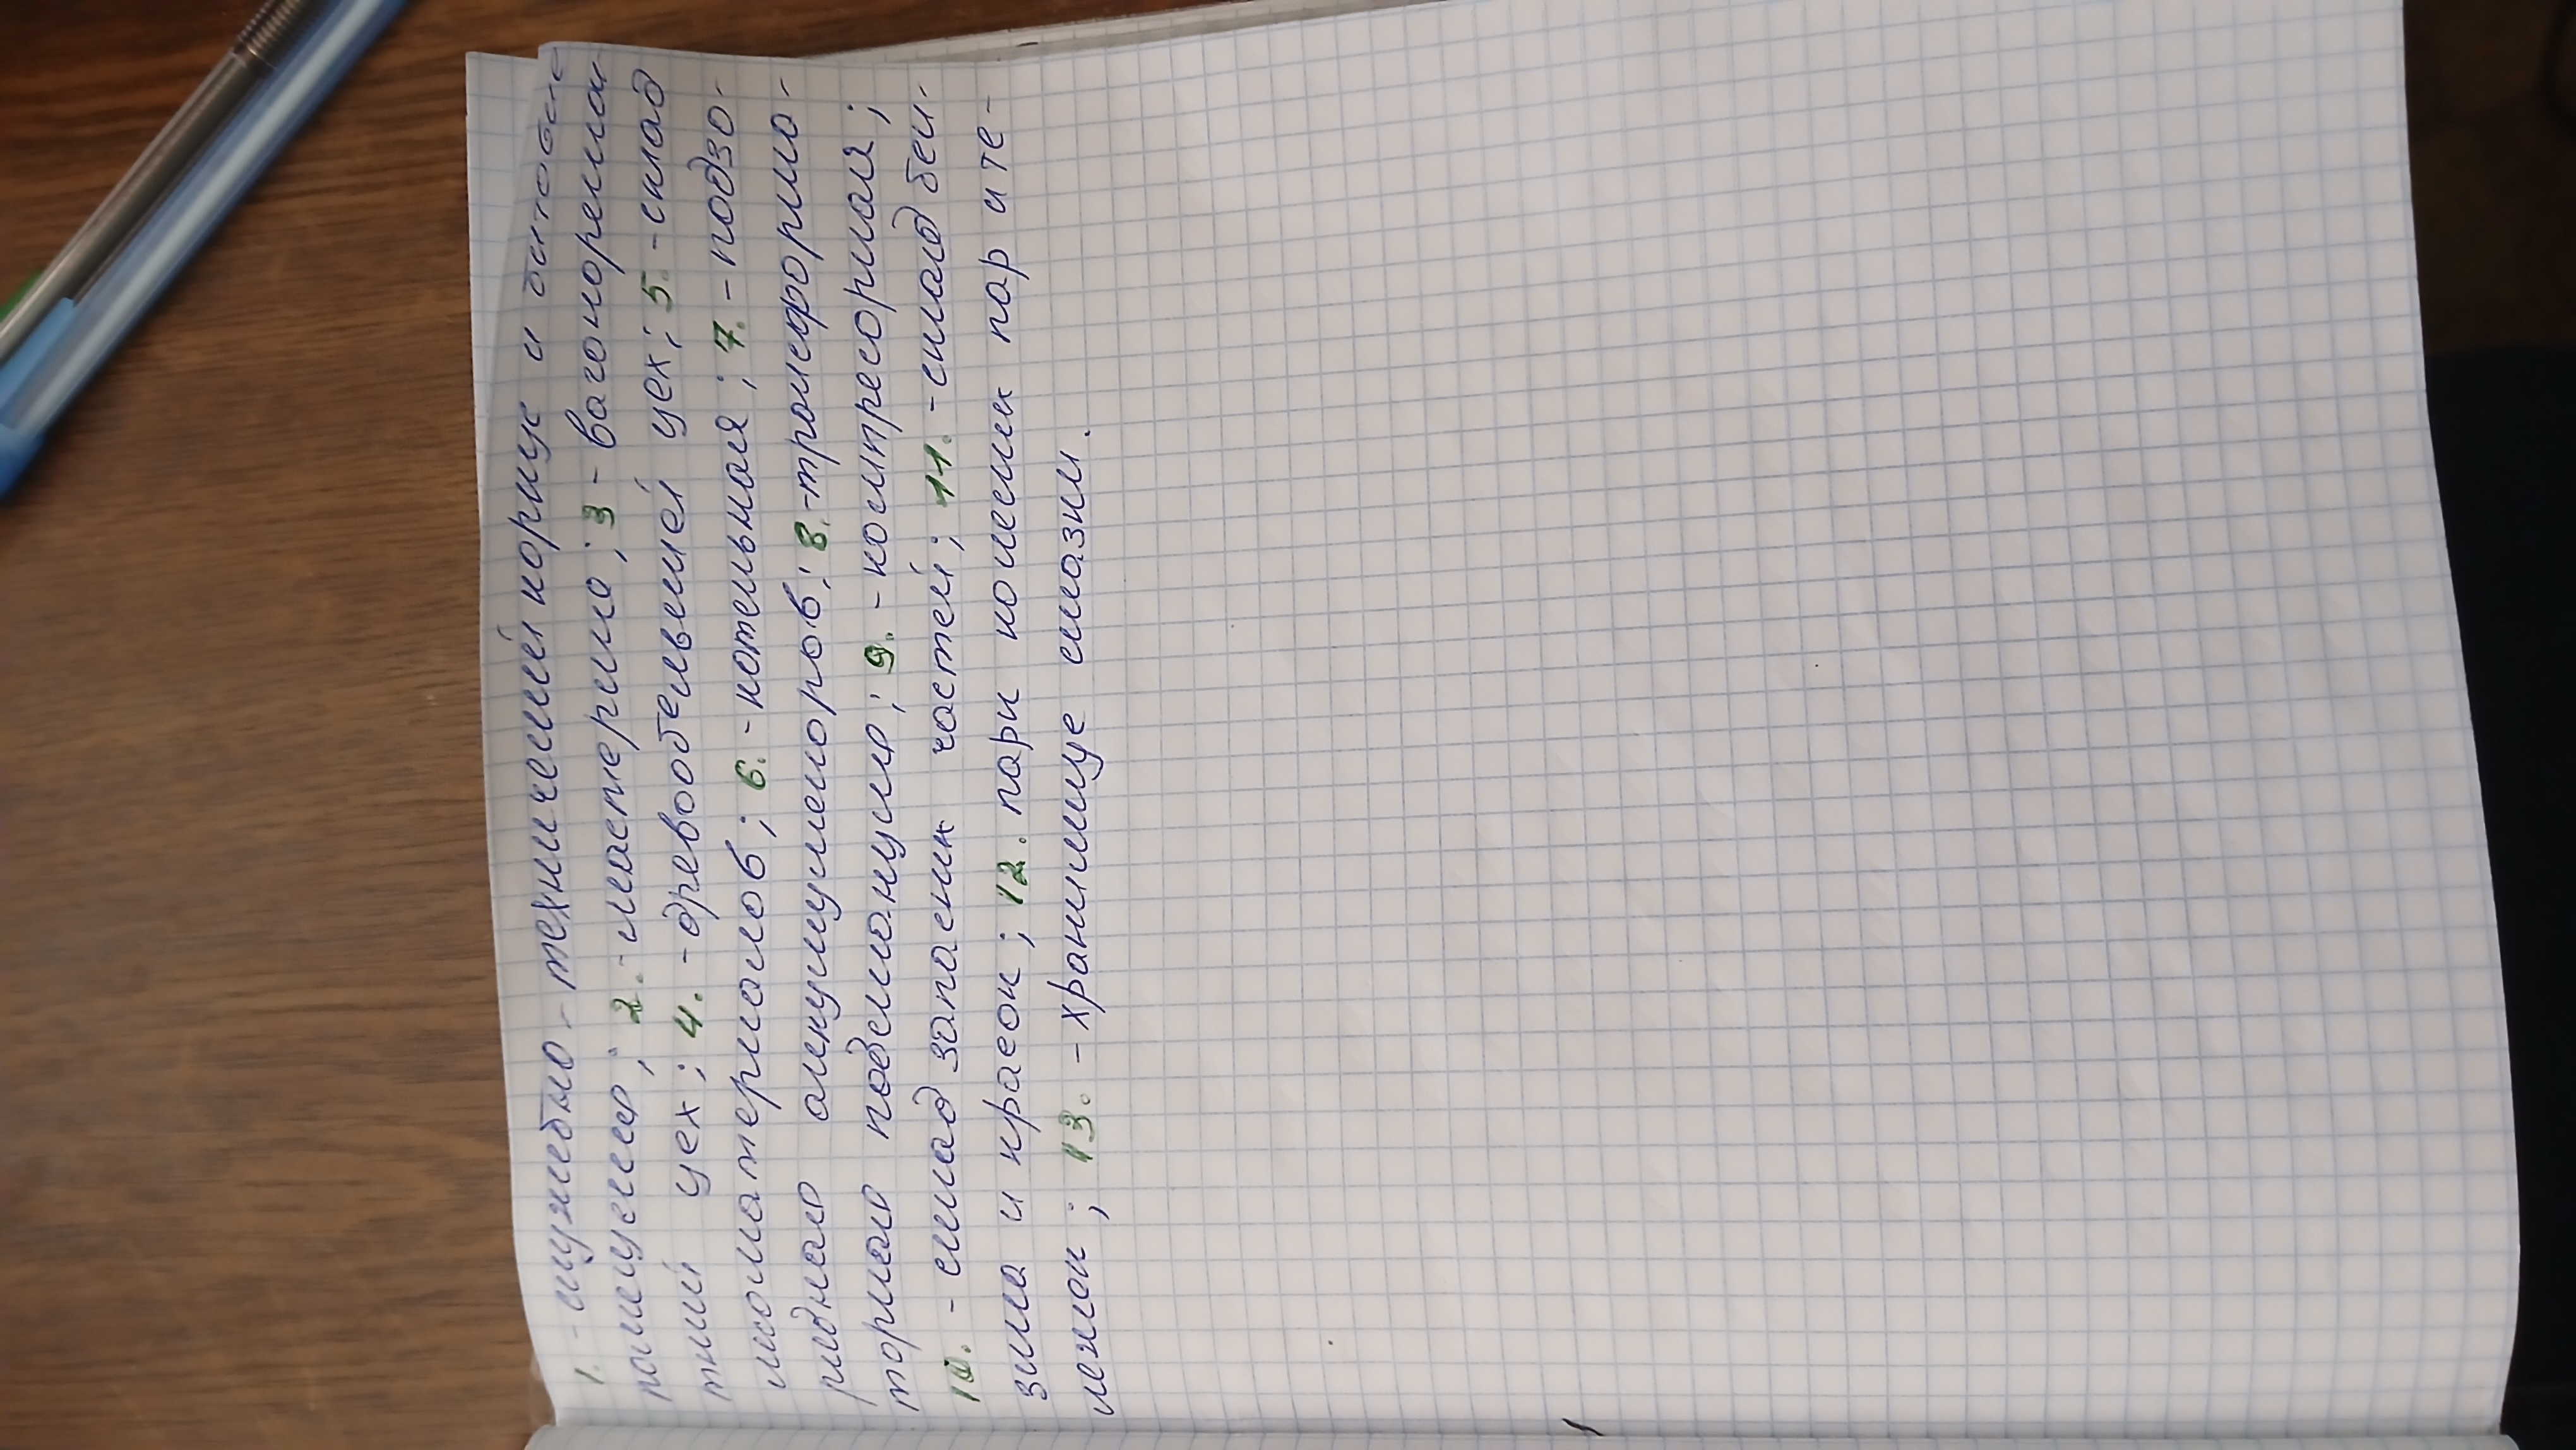 1. - служебно - технический корпус и бытовые
помещения; 2. - мастерская; 3 - вагоноремон
тный цех; 4. - древообделочный цех; 5. - склад
лесоматериалов; 6. - котельная; 7. - подзо-
рядная аккумуляторов; 8. - трансформа-
торная подстанция; 9. - компресорная;
10. - склад запасных частей; 11. - склад бен-
зина и красок; 12. парк колесных пар и те-
лежек; 13. - хранилище смазки.